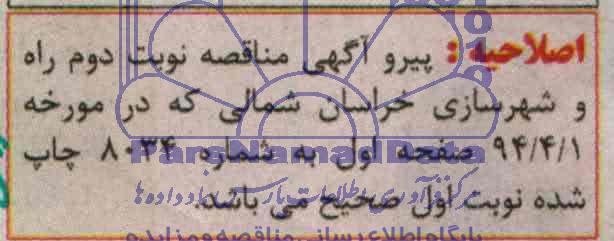 اصلاحیه : پیرو آگهی مناقصه نوبت دوم راه
و شهرسازی خراسان شمالی که در مورخه
۹۴/۴/۱ صفحه اول به شماره ۸۰۳۴ چاپ
شده نوبت اول صحیح می باشد.
ParsNamadData
مرکز فرآوری اطلاعات پارس نماد داده ها
پایگاه اطلاع رسانی مناقصه و مزایده